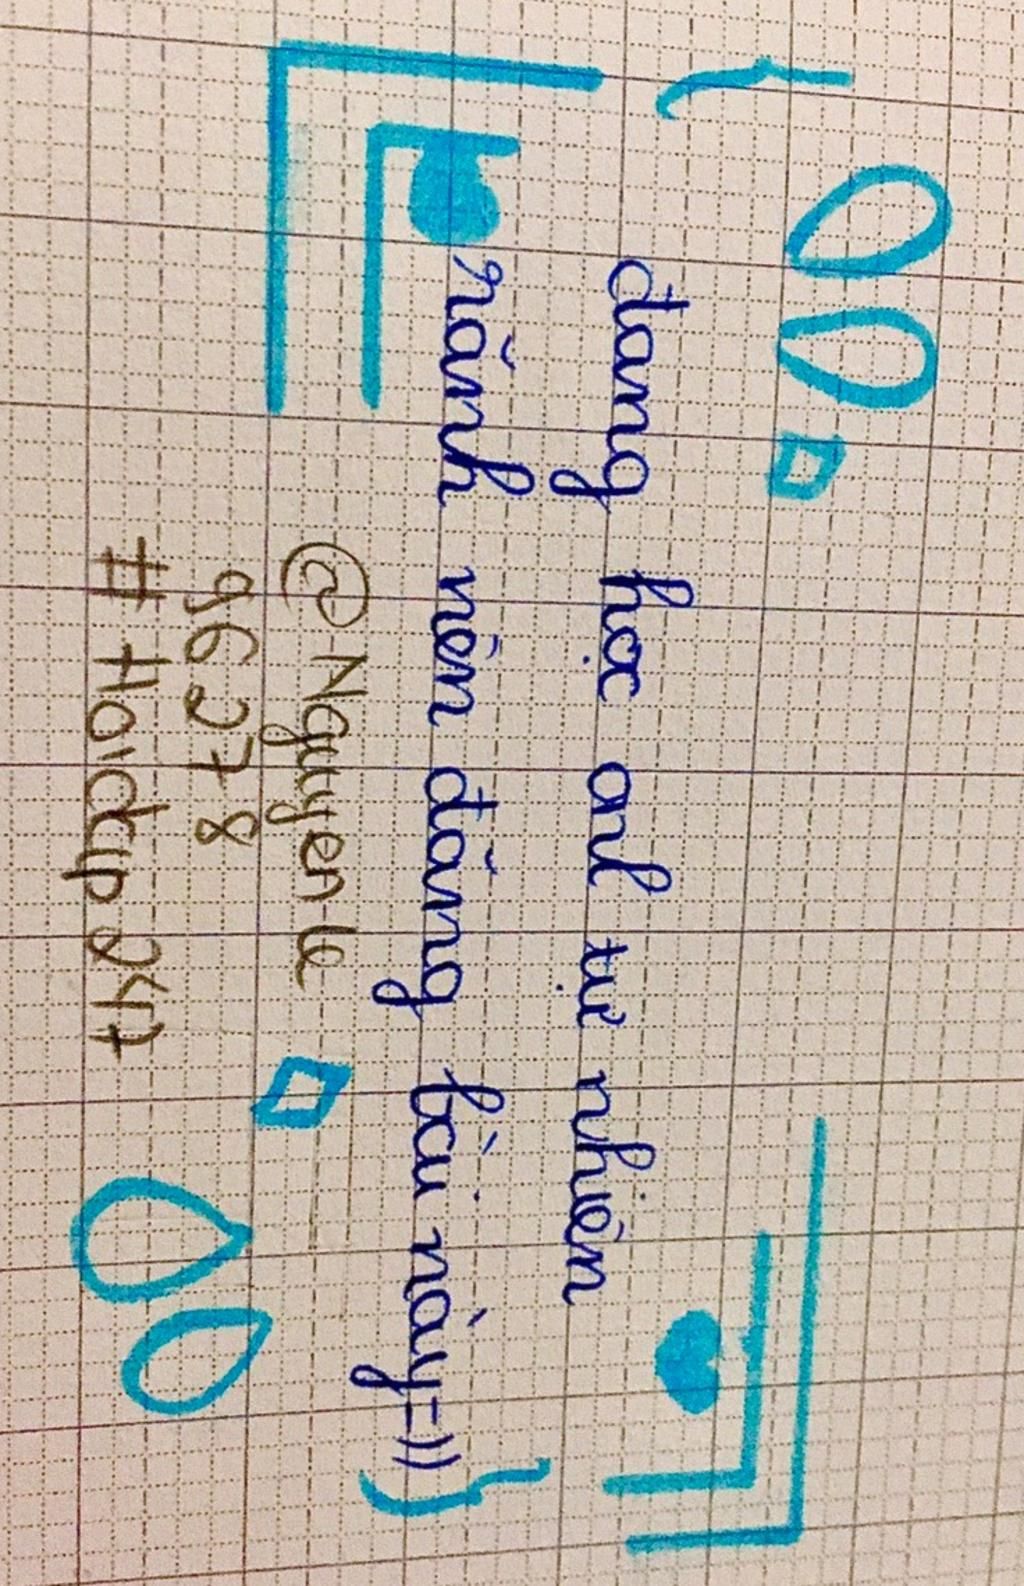 đang học anh tự nhiên
rảnh nên đăng bài này=))
@Nguyenle
96278
#Hoidap247